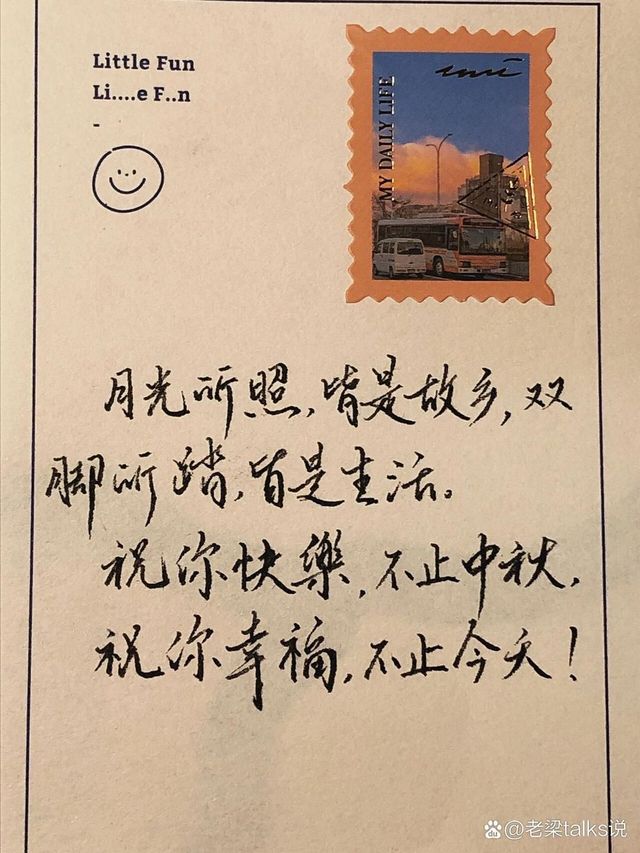 Little Fun
Li....e F..n
-
MY DAILY LIFE
月光所照,皆是故乡,双
脚所踏,皆是生活。
祝你快樂,不止中秋,
祝你幸福,不止今天!
@老梁talks说